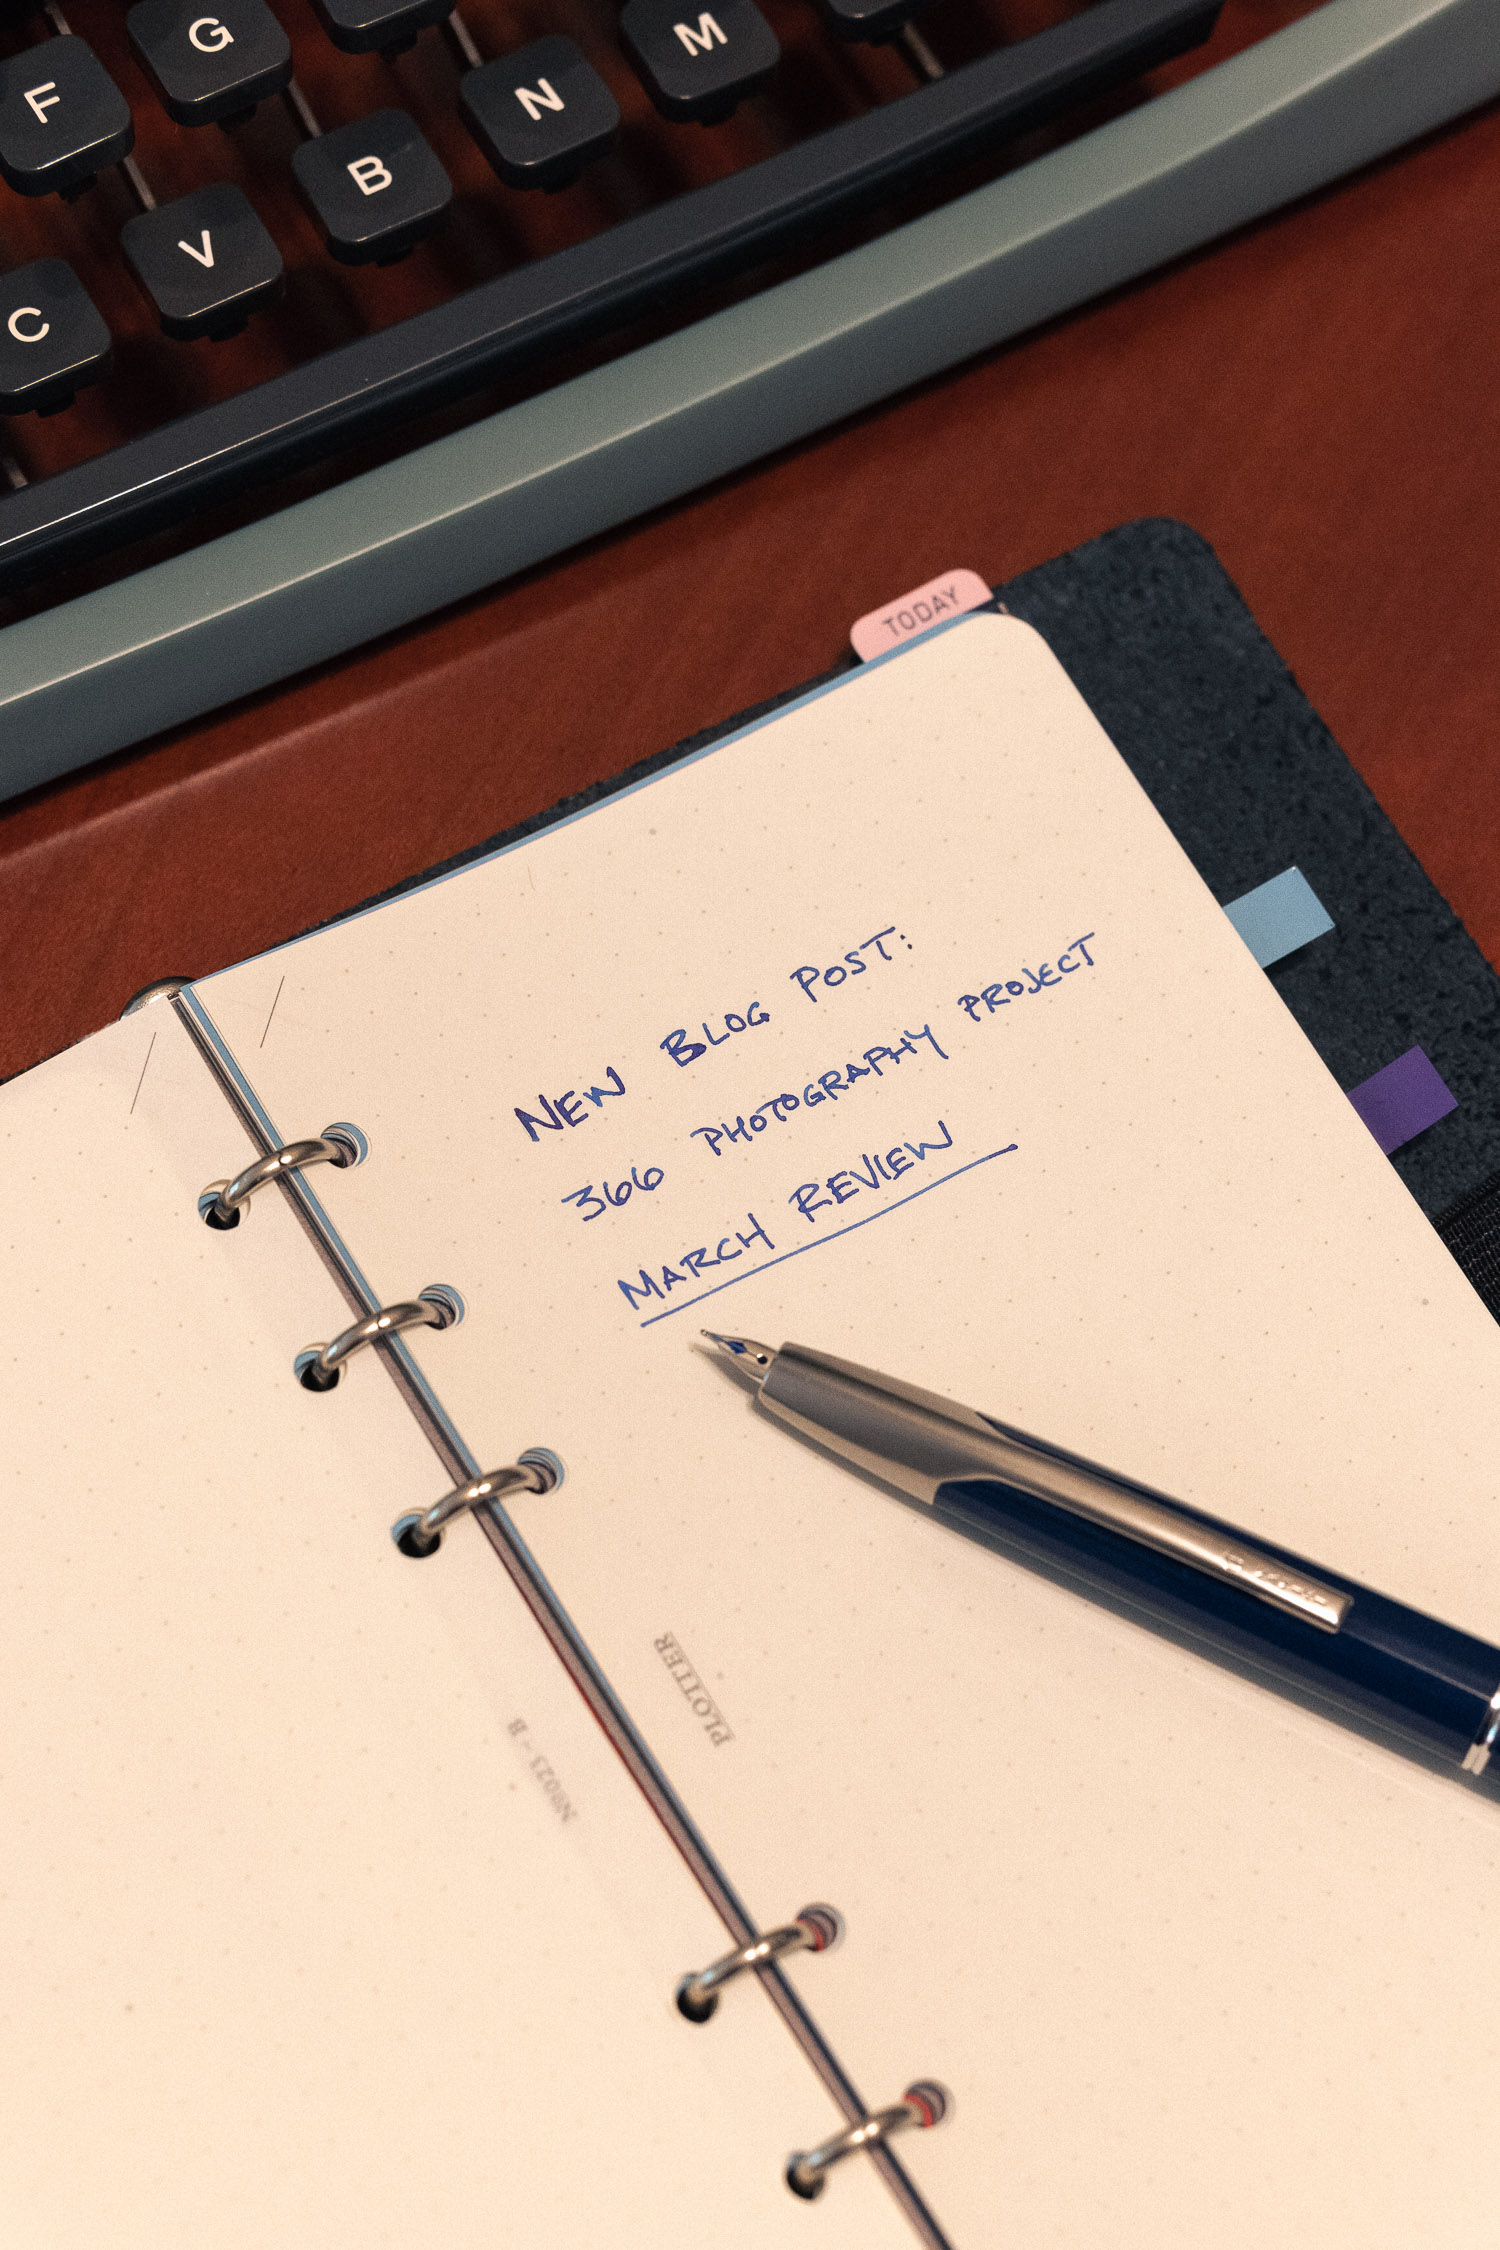 G
M
F
N
B
V
C
TODAY
NEW BLOG POST:
366 PHOTOGRAPHY PROJECT
MARCH REVIEW
PLOTTER